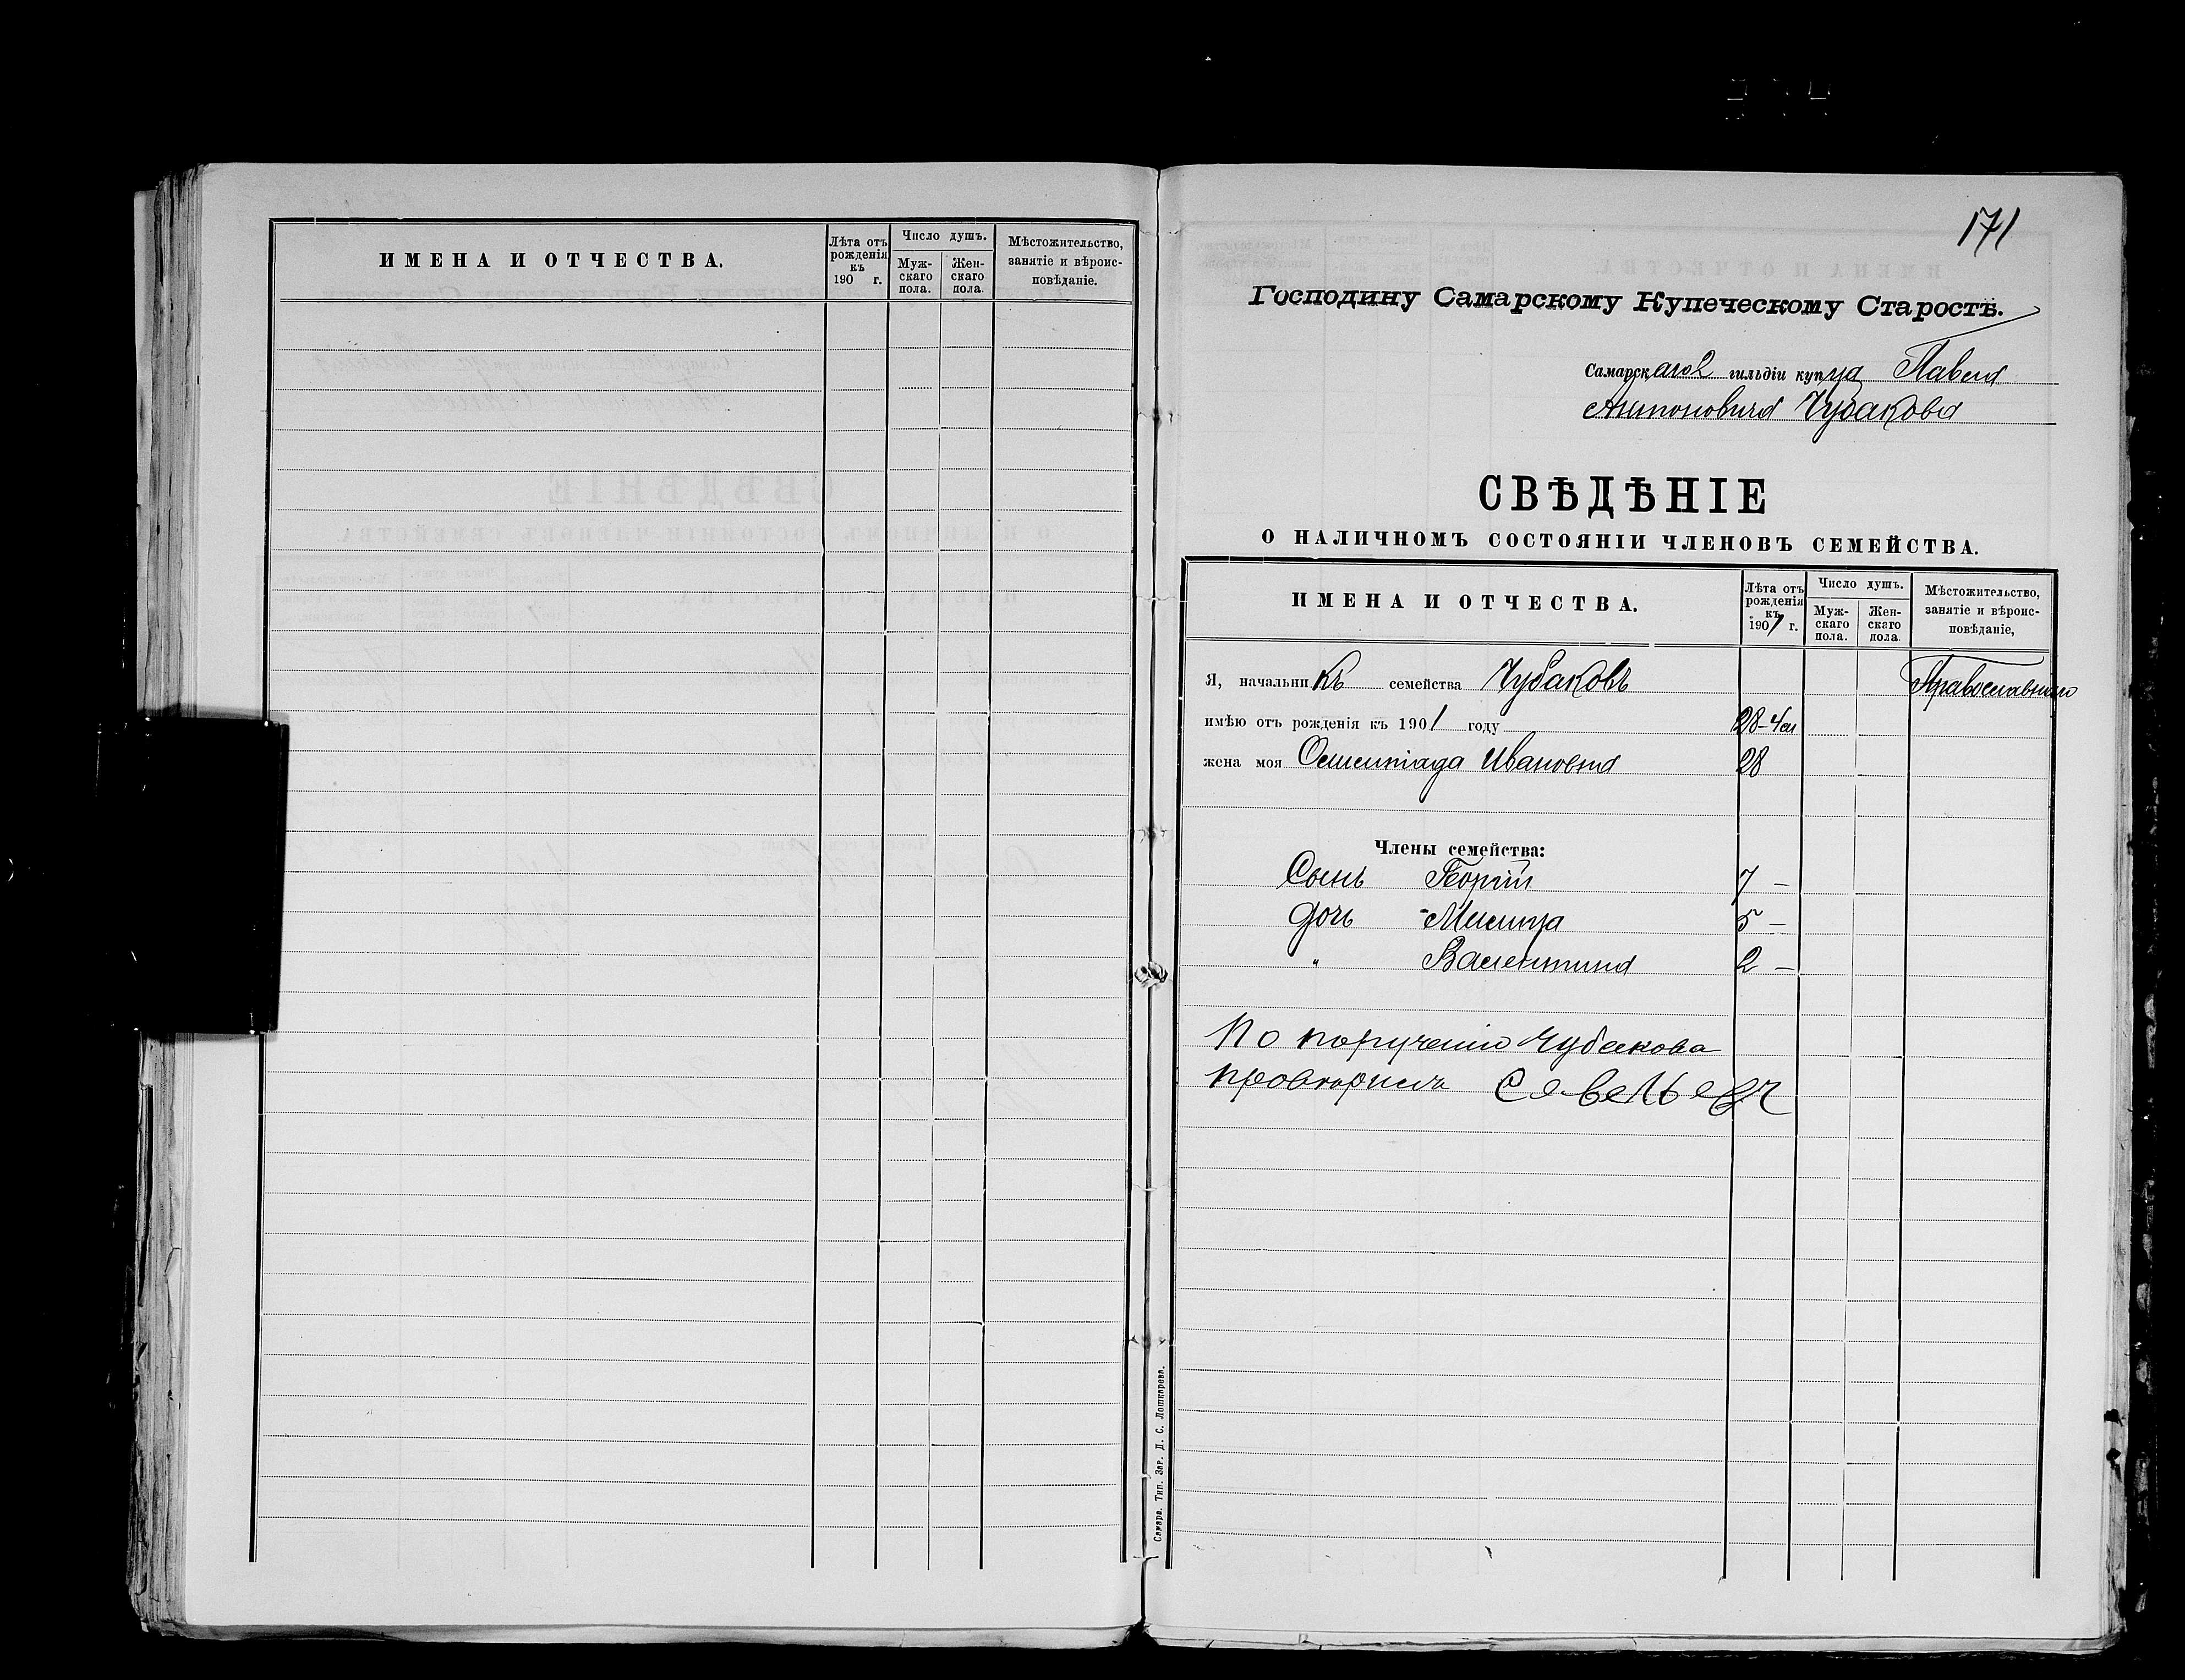 ИМЕНА И ОТЧЕСТВА.
Лѣта отъ рожденія къ 190 г.
Число душъ.
Мужскаго пола.
Женскаго пола.
Мѣстожительство, занятіе и вѣроисповѣданіе.
171
Господину Самарскому Купеческому Старостѣ.
Самарскаго 2 гильдіи купца Павла
Антоновича Чубакова
СВѢДѢНІЕ
О НАЛИЧНОМЪ СОСТОЯНІИ ЧЛЕНОВЪ СЕМЕЙСТВА.
ИМЕНА И ОТЧЕСТВА.
Лѣта отъ рожденія къ 1901 г.
Число душъ.
Мужскаго пола.
Женскаго пола.
Мѣстожительство, занятіе и вѣроисповѣданіе,
Я, начальникъ семейства Чубаковъ Православнаго
имѣю отъ рожденія къ 1901 году 28-4
жена моя Олимпіада Ивановна 28
Члены семейства:
Сынъ Георгій 7 –
Дочь Милица 5 –
" Валентина 2 –
По порученію Чубакова
Савельевъ
Самара. Тип. Зар. Д. С. Лошкарева.